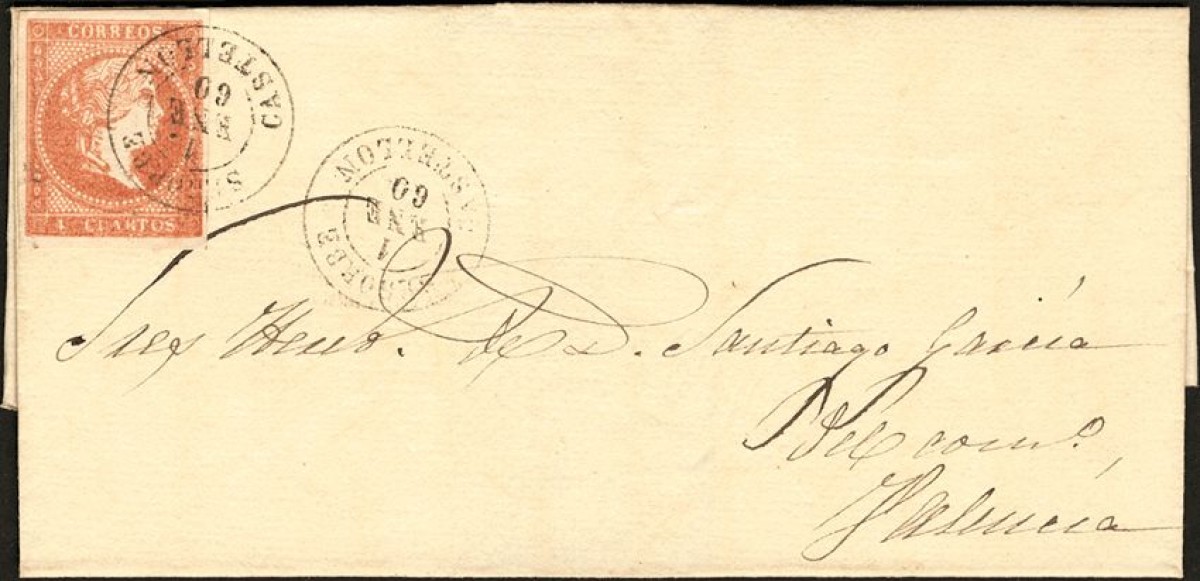 CORREOS
4 CUARTOS
SEGORBE
1
ENE
60
CASTELLON
SEGORBE
1
ENE
60
CASTELLON
Sres Hered. de D. Santiago García
Del com.o,
Valencia